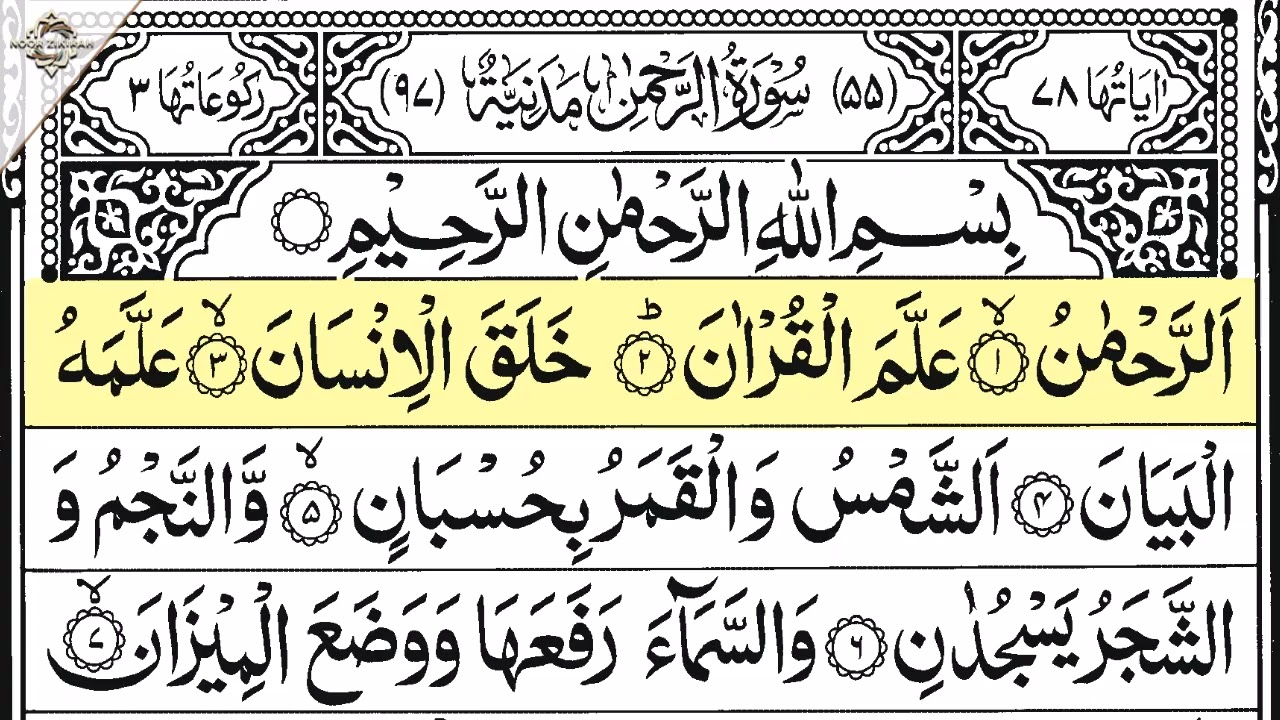 NOOR ZIKIRAH
اٰيَاتُهَا ٧٨ (٥٥) سُوْرَةُ الرَّحْمٰنِ مَدَنِيَّةٌ (٩٧) رُكُوْعَاتُهَا ٣
بِسْمِ اللّٰهِ الرَّحْمٰنِ الرَّحِيْمِ
اَلرَّحْمٰنُ ۙ‏﴿۱﴾ عَلَّمَ الْقُرْاٰنَ ؕ‏﴿۲﴾ خَلَقَ الْاِنْسَانَ ۙ‏﴿۳﴾ عَلَّمَهُ
الْبَيَانَ ‏﴿۴﴾ اَلشَّمْسُ وَالْقَمَرُ بِحُسْبَانٍ ۙ‏﴿۵﴾ وَّالنَّجْمُ وَ
الشَّجَرُ يَسْجُدٰنِ ‏﴿۶﴾ وَالسَّمَآءَ رَفَعَهَا وَوَضَعَ الْمِيْزَانَ ۙ‏﴿۷﴾